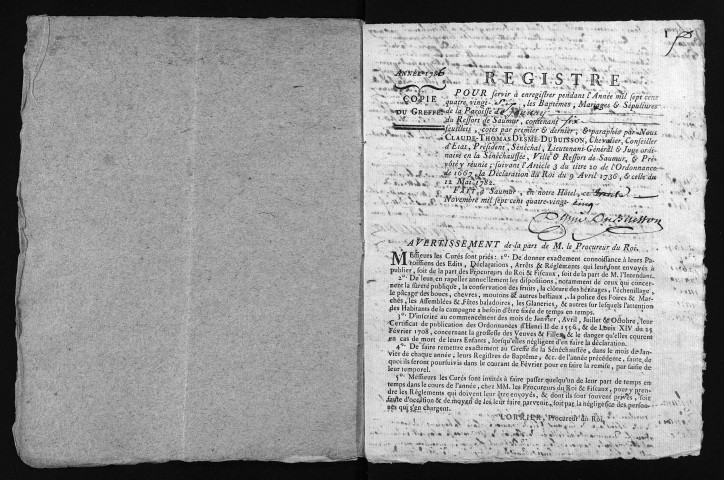 1
ANNÉE 1786
COPIE
DU GREFFE.
REGISTRE
POUR servir à enregistrer pendant l'Année mil sept cent
quatre-vingt- Six, les Baptêmes, Mariages & Sépultures
de la Paroisse de
du Ressort de Saumur, contenant six
feuillets, cotés par premier & dernier, & paraphés par Nous
CLAUDE-THOMAS DESMÉ DUBUISSON, Chevalier, Conseiller
d'Etat, Président, Sénéchal, Lieutenant-Général & Juge ordi-
naire en la Sénéchaussée, Ville & Ressort de Saumur, & Pré-
vôté y réunie; suivant l'Article 3 du titre 20 de l'Ordonnance
de 1667, la Déclaration du Roi du 9 Avril 1736, & celle du
12 Mai 1782.
FAIT à Saumur, en notre Hôtel, ce trente
Novembre mil sept cent quatre-vingt cinq
Desmé Dubuisson
AVERTISSEMENT de la part de M. le Procureur du Roi.
Messieurs les Curés sont priés: 1°. De donner exactement connoissance à leurs Pa-
roissiens des Edits, Déclarations, Arrêts & Réglements qui leur sont envoyés à
publier, soit de la part des Procureurs du Roi & Fiscaux, soit de la part de M. l'Intendant.
2°. De leur en rappeller annuellement les dispositions, notamment de ceux qui concer-
nent la sûreté publique, la conservation des fruits, la clôture des héritages, l'échenillage,
le pacage des boucs, chevres, moutons & autres bestiaux, la police des Foires & Mar-
chés, les Assemblées & Fêtes baladoires, les Glaneries, & autres sur lesquels l'attention
des Habitants de la campagne a besoin d'être fixée de temps en temps.
3°. D'inscrire au commencement des mois de Janvier, Avril, Juillet & Octobre, leur
Certificat de publication des Ordonnances d'Henri II de 1556, & de Louis XIV du 25
Février 1708, concernant la grossesse des Veuves & Filles, & le danger qu'elles courent
en cas de mort de leurs Enfants, lorsqu'elles négligent d'en faire la déclaration.
4°. De faire remettre exactement au Greffe de la Sénéchaussée, dans le mois de Jan-
vier de chaque année, leurs Registres de Baptême, &c. de l'année précédente, faute de
quoi ils seront poursuivis dans le courant de Février pour en faire la remise, par saisie de
leur temporel.
5°. Messieurs les Curés sont invités à faire passer quelqu'un de leur part de temps en
temps dans le cours de l'année, chez MM. les Procureurs du Roi & Fiscaux, pour y pren-
dre les Réglements qui doivent leur être envoyés, & dont ils sont souvent privés, soit
faute d'occasion & de moyen de les leur faire parvenir, soit par la négligence des person-
nes qui s'en chargent.
LORRIER, Procureur du Roi.